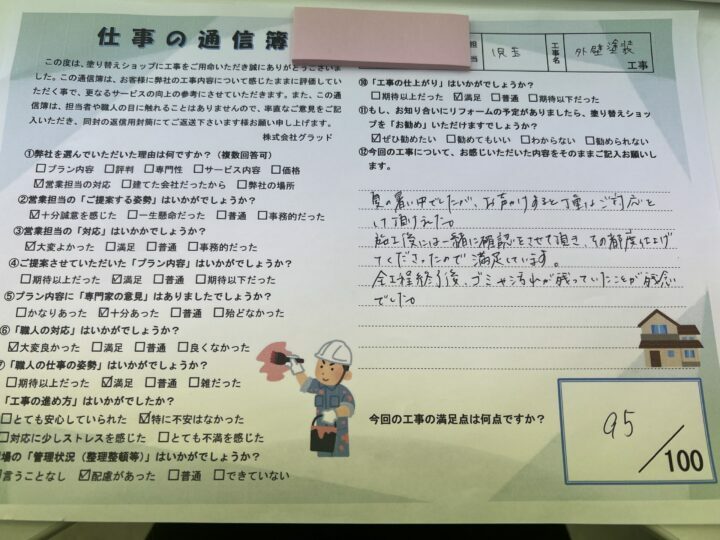 仕事の通信簿
この度は、塗り替えショップに工事をご用命いただき誠にありがとうございま
した。この通信簿は、お客様に弊社の工事内容について感じたままに評価してい
ただく事で、更なるサービスの向上の参考にさせていただきます。また、この通
信簿は、担当者や職人の目に触れることはありませんので、率直なご意見をご記
入いただき、同封の返信用封筒にてご返送下さいます様お願い申し上げます。
株式会社グラッド
①弊社を選んでいただいた理由は何ですか？（複数回答可）
□プラン内容 □評判 □専門性 □サービス内容 □価格
☑営業担当の対応 □建てた会社だったから □弊社の場所
②営業担当の「ご提案する姿勢」はいかがでしょうか？
☑十分誠意を感じた □一生懸命だった □普通 □事務的だった
③営業担当の「対応」はいかかでしょうか？
☑大変よかった □満足 □普通 □事務的だった
④ご提案させていただいた「プラン内容」はいかがでしょうか？
□期待以上だった ☑満足 □普通 □期待以下だった
⑤プラン内容に「専門家の意見」はありましたでしょうか？
□かなりあった ☑十分あった □普通 □殆どなかった
⑥「職人の対応」はいかがでしょうか？
☑大変良かった □満足 □普通 □良くなかった
⑦「職人の仕事の姿勢」はいかがでしょうか？
□期待以上だった ☑満足 □普通 □雑だった
「工事の進め方」はいかがでしたか？
□とても安心していられた ☑特に不安はなかった
□対応に少しストレスを感じた □とても不満を感じた
場の「管理状況（整理整頓等）」はいかがでしょうか？
言うことなし ☑配慮があった □普通 □できていない
担
児玉
工事名
外壁塗装
工事
⑩「工事の仕上がり」はいかがでしょうか？
□期待以上だった ☑満足 □普通 □期待以下だった
⑪もし、お知り合いにリフォームの予定がありましたら、塗り替えショップ
を「お勧め」いただけますでしょうか？
☑ぜひ勧めたい □勧めてもいい □わからない □勧められない
⑫今回の工事について、お感じいただいた内容をそのままご記入お願いし
ます。
夏の暑い中でしたが、お声かけすると丁重にご対応と
して頂けました。
施工後には一緒に確認をさせて頂き、その都度仕上げ
てくださったので満足しています。
全工程終了後、ゴミや汚れが残っていたことが残念
でした。
今回の工事の満足点は何点ですか？
95
／100